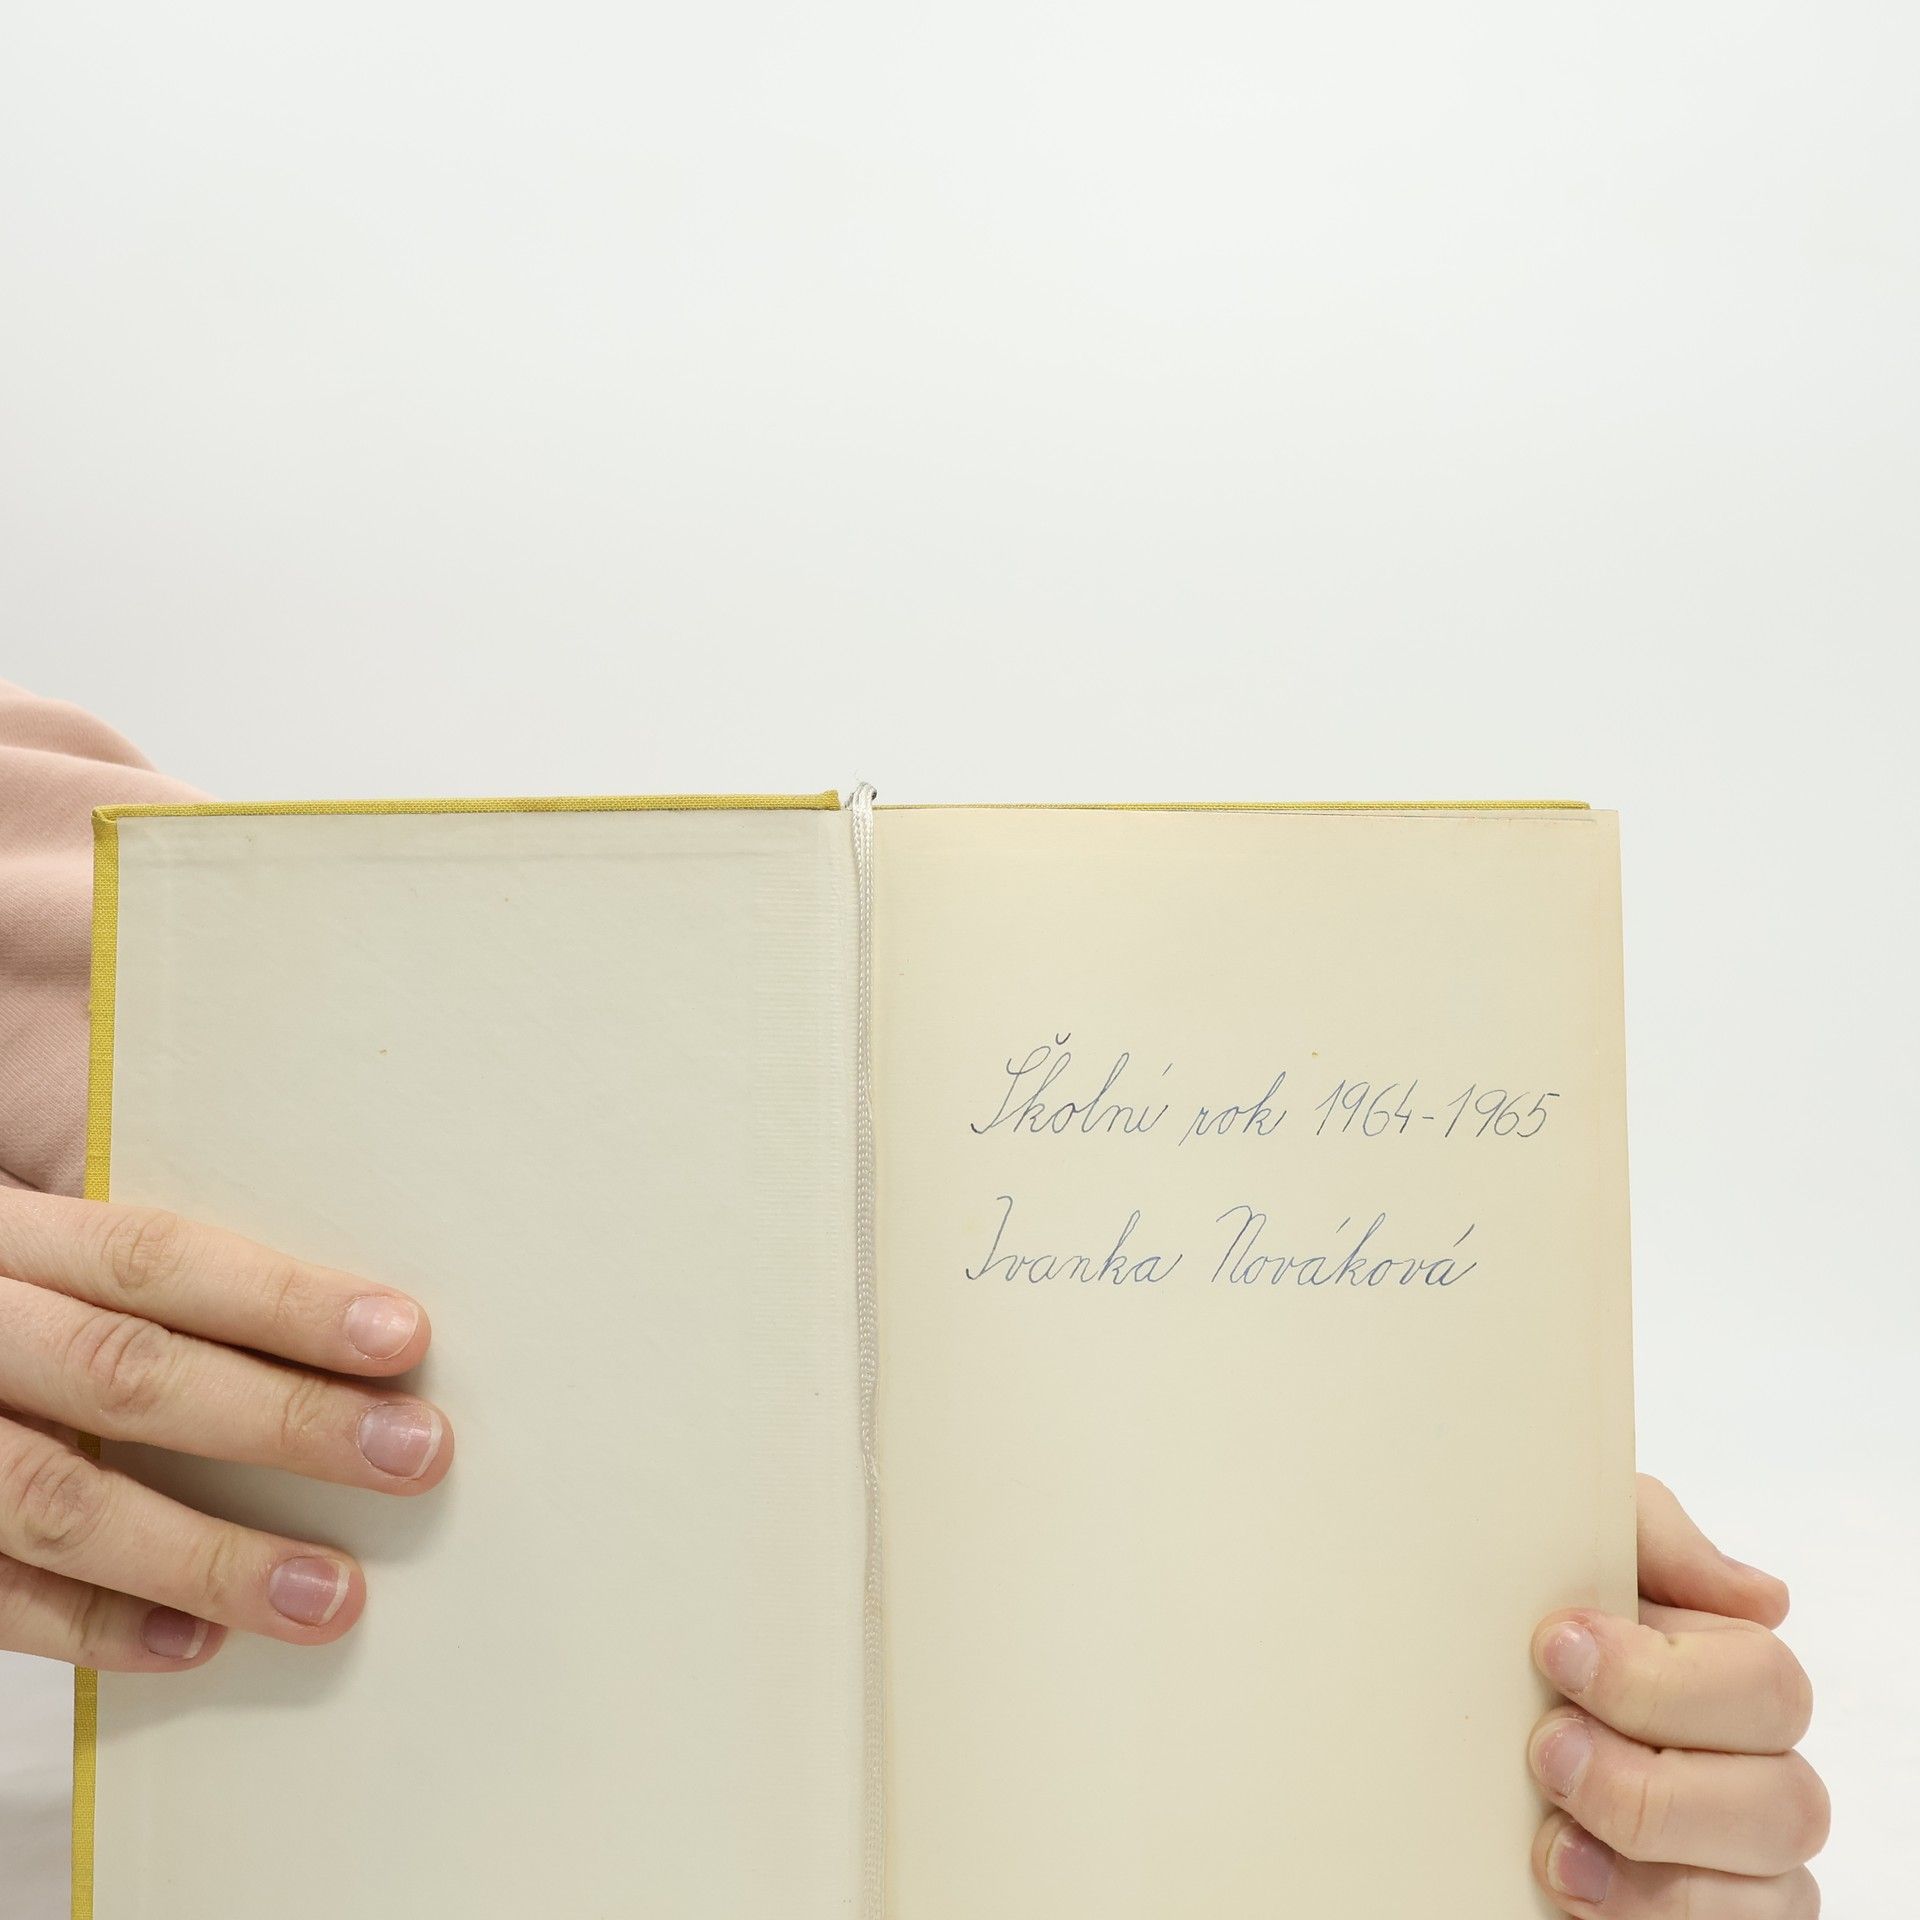 Školní rok 1964-1965
Ivanka Nováková